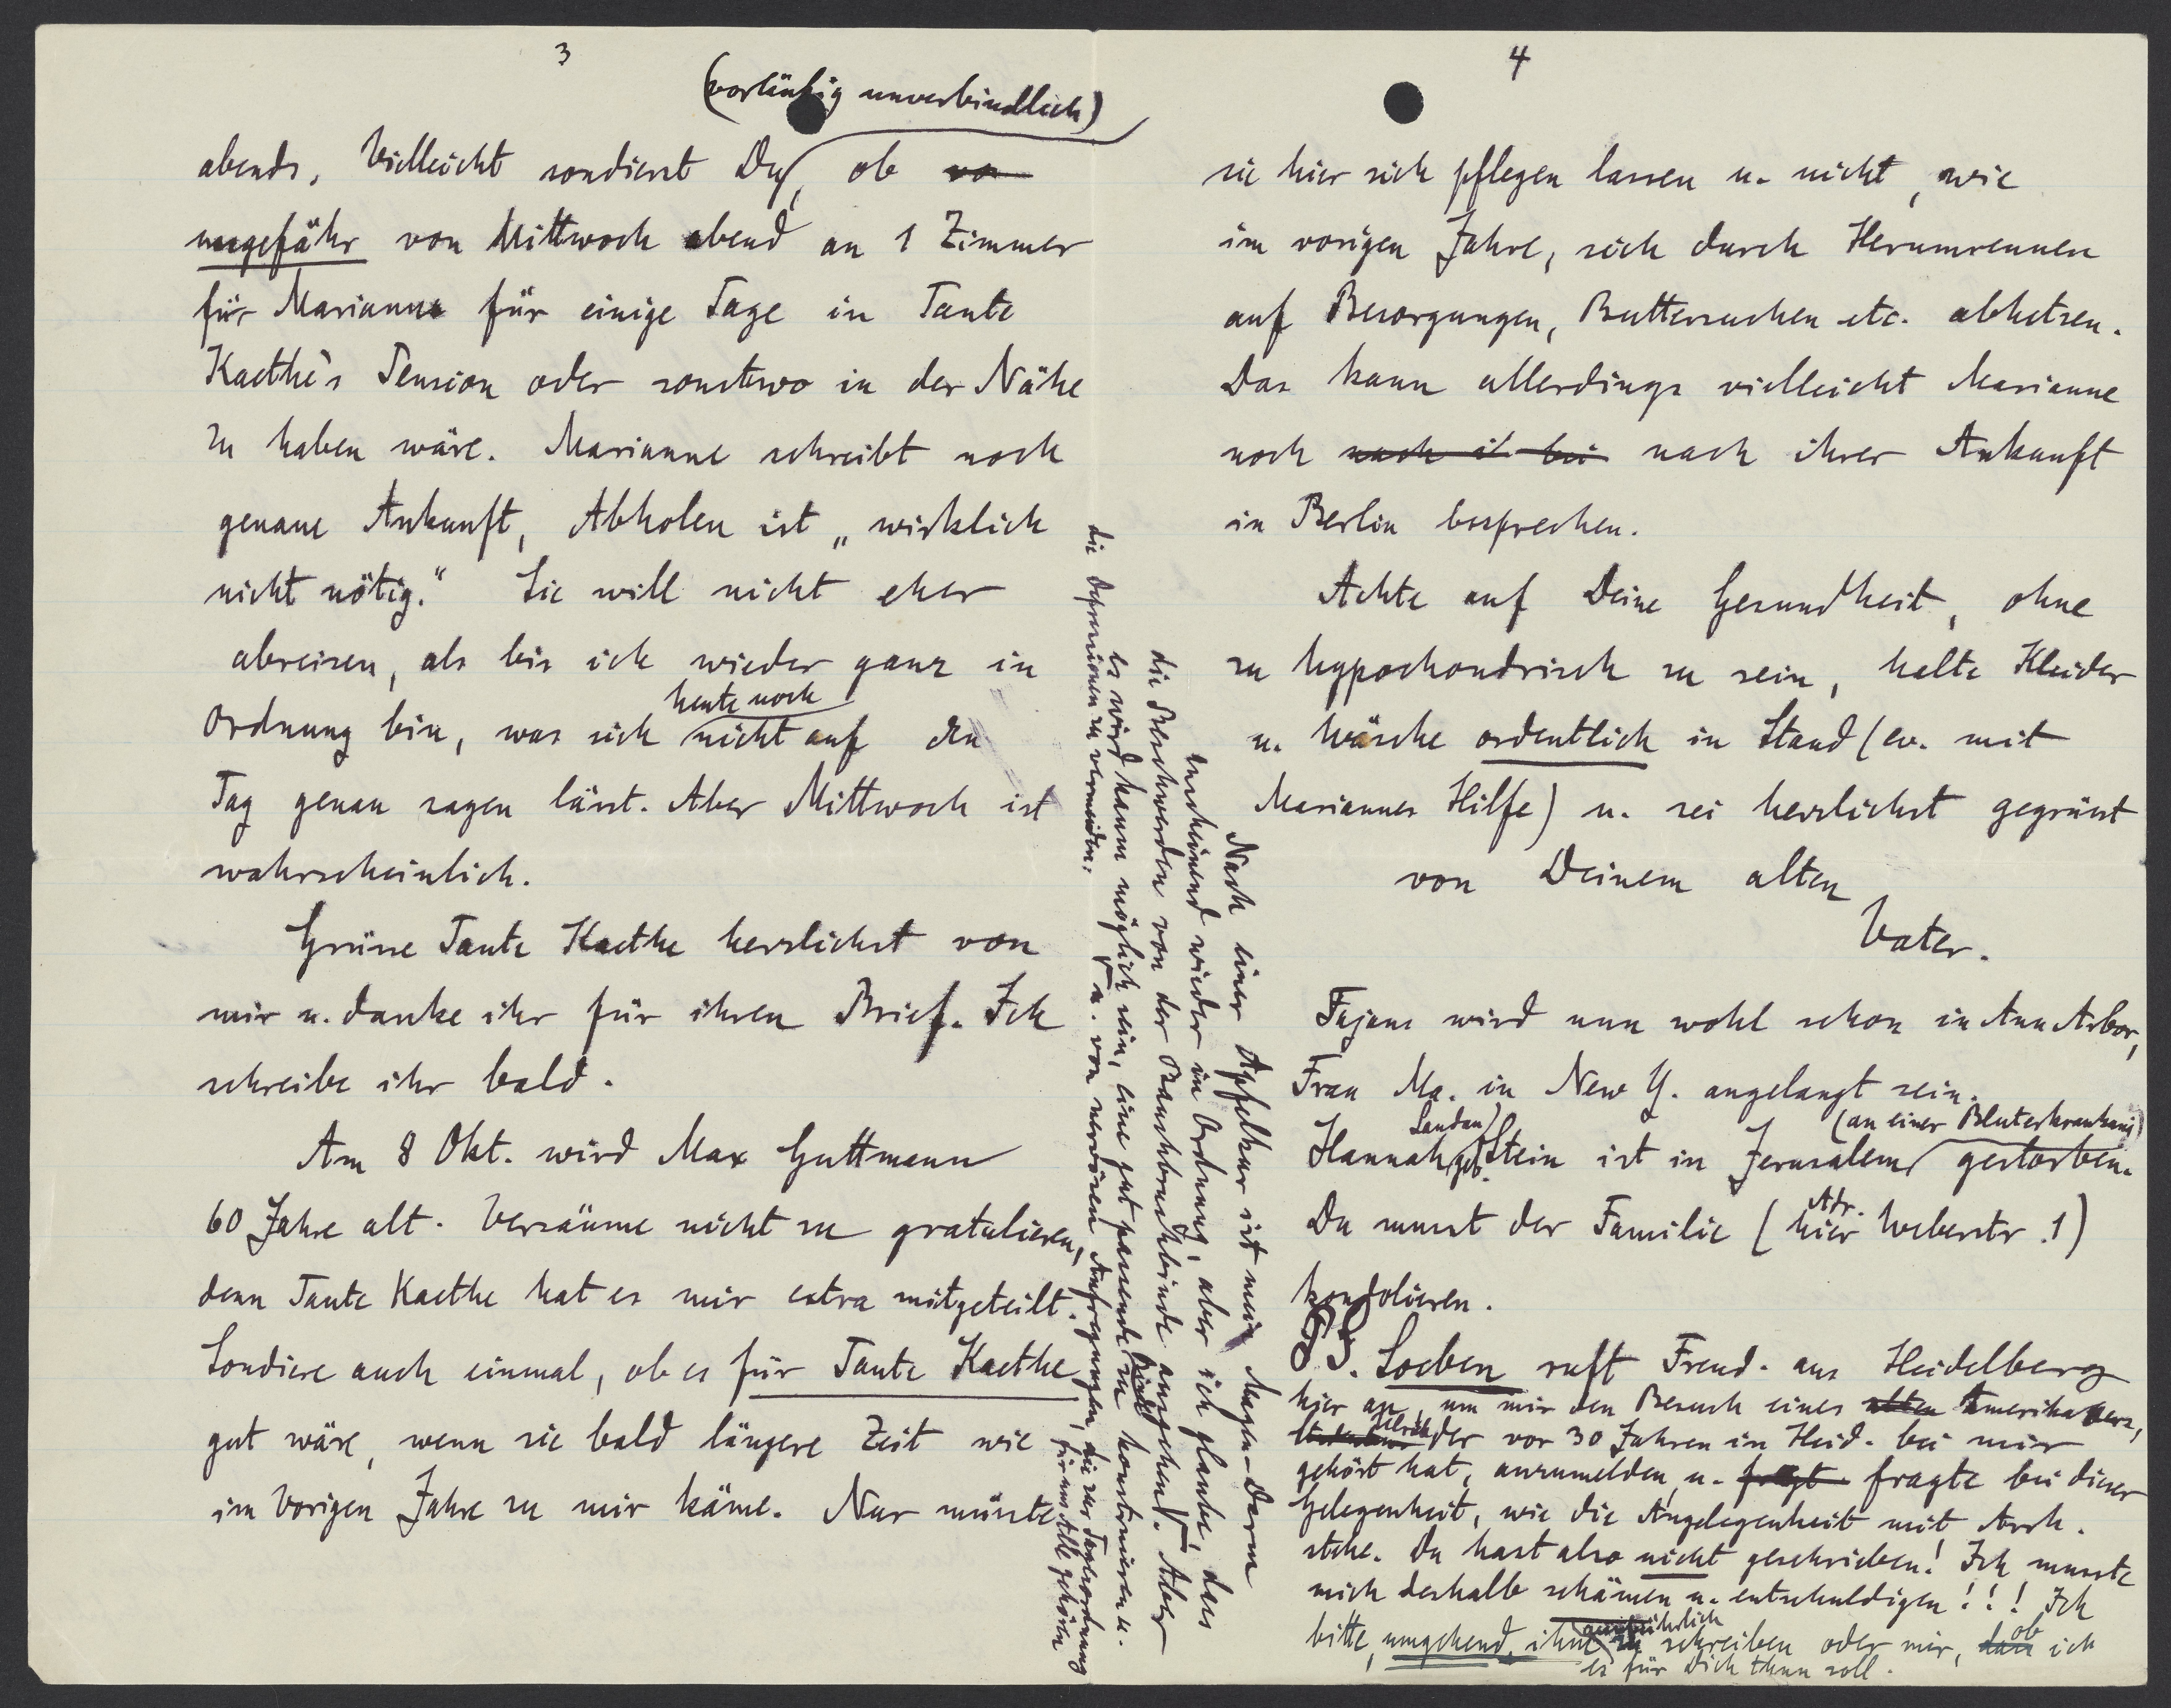 3
(vorläufig unverbindlich)
abends. Vielleicht sondierst Du, ob vo
ungefähr von Mittwoch abend an 1 Zimmer
für Marianne für einige Tage in Tante
Kaethe's Pension oder sonstwo in der Nähe
zu haben wäre. Marianne schreibt noch
genaue Ankunft, Abholen ist „wirklich
nicht nötig.“ Sie will nicht eher
abreisen, als bis ich wieder ganz in
heute noch
Ordnung bin, was sich nicht auf den
Tag genau sagen lässt. Aber Mittwoch ist
wahrscheinlich.
Grüsse Tante Kaethe herzlichst von
mir u. danke ihr für ihren Brief. Ich
schreibe ihr bald.
Am 8 Okt. wird Max Guttmann
60 Jahre alt. Versäume nicht zu gratulieren,
denn Tante Kaethe hat es mir extra mitgeteilt.
Sondiere auch einmal, ob es für Tante Kaethe
gut wäre, wenn sie bald längere Zeit wie
im vorigen Jahre zu mir käme. Nur müsste
4
sie hier sich pflegen lassen u. nicht, wie
im vorigen Jahre, sich durch Herumrennen
auf Besorgungen, Buttersuchen etc. abhetzen.
Das kann allerdings vielleicht Marianne
noch nach i bei nach ihrer Ankunft
in Berlin besprechen.
Achte auf Deine Gesundheit, ohne
zu hypochondrisch zu sein, halte Kleider
u. Wäsche ordentlich in Stand (ev. mit
Mariannes Hilfe) u. sei herzlichst gegrüsst
von Deinem alten
Vater.
Fajans wird nun wohl schon in Ann Arbor,
Frau Ma. in New Y. angelangt sein.
Landau (an einer Bluterkrankung)
Hannah geb. Stein ist in Jerusalem gestorben.
Adr.
Du musst der Familie (hier Weberstr. 1)
kondolieren.
PS. Loeben ruft Freud. aus Heidelberg
hier an, um mir den Besuch eines alten Amerikaners,
der vor 30 Jahren in Heid. bei mir
gehört hat, anzumelden, u. fragt fragte bei dieser
Gelegenheit, wie die Angelegenheit mit Arch.
stehe. Du hast also nicht geschrieben! Ich musste
mich deshalb schämen u. entschuldigen!!! Ich
ausführlich ob
bitte, umgehend, ihm zu schreiben oder mir, dass ich
es für Dich thun soll.
Nach einer Apfelkur ist mein Magen-Darm
anscheinend wieder in Ordnung, aber ich glaube, dass
die Beschwerden von der Bauchbruchbinde ausgehen. Aber
es wird kaum möglich sein, eine gut passende Binde zu konstruieren u.
die Depressionen zu vermeiden.
u. von nervösen Aufregungen, die zur Tagesordnung
für uns Alle gehören